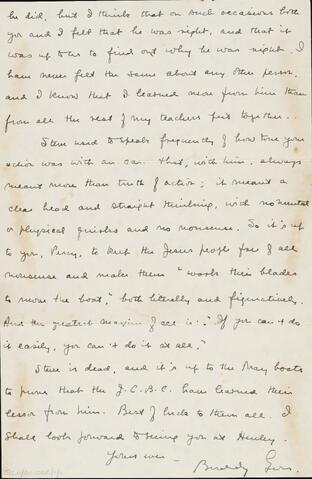 he did, but I think that on such occasions both
you and I felt that he was right, and that it
was up to us to find out why he was right. I
have never felt the same about any other person,
and I know that I learned more from him than
from all the rest of my teachers put together.
Steve used to speak frequently of how true your
action was with an oar. That, with him, always
meant more than truth of action; it meant a
clear head and straight thinking, with no mental
or physical finishes and no nonsense. So it's up
to you, Percy, to keep the Jesus people free of all
nonsense and make them "work their blades
to move the boat," both literally and figuratively.
And the greatest maxim of all is: "If you can't do
it easily, you can't do it at all."
Steve is dead, and it's up to the May boats
to prove that the J.C.B.C. have learned their
lesson from him. Best of luck to them all. I
shall look forward to seeing you at Henley.
Yours ever